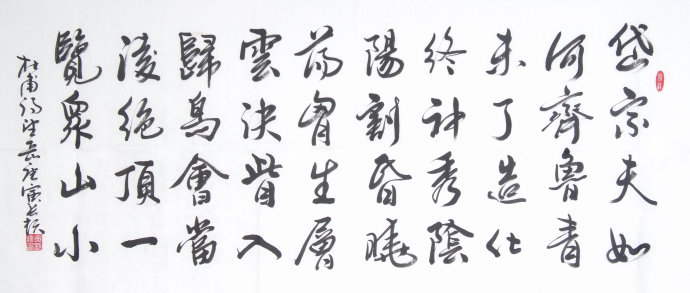 岱宗夫如
何齊魯青
未了造化
終神秀陰
陽割昏曉
蕩胷生層
雲決眥入
歸鳥會當
凌絕頂一
覽衆山小
杜甫詩望岳庚寅